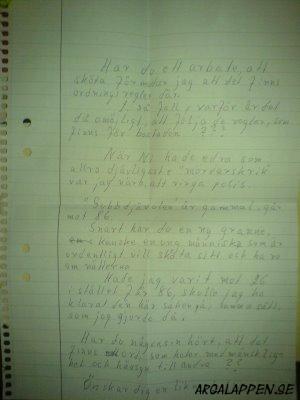 Har du ett arbete, att
sköta förmodar jag att det finns
ordningsregler där.
I så fall, varför är det
då omöjligt, att följa de regler, som
finns för bostaden ???
När Ni hade edra som
allra djävligaste "mordarskrik"
var jag nära att ringa polis.
"Gubbdjäveln" är gammal, går
mot 86.
Snart har du en ny granne,
kanske en ung människa som är
ordentligt vill sköta sitt och ha ro
om nätterna
Hade jag varit mot 26
i stället för 86, skulle jag ha
klarat den här saken på samma sätt,
som jag gjorde då.
Har du någonsin hört, att det
finns ord, som heter medmänsklig-
het och hänsyn till andra ??
Önskar dig en
ARGALAPPEN.SE